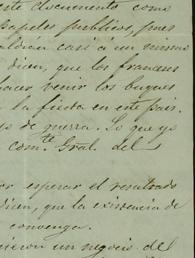 este documento como
papeles publicos, pues
casi á un mismo
dicen, que los franceses
hacer venir los buques
la fiesta en este pais.
de guerra. Lo que yo
Com.te Gral. del
por esperar el resultado
dicen, que la existencia de
convenga.
un negocio del